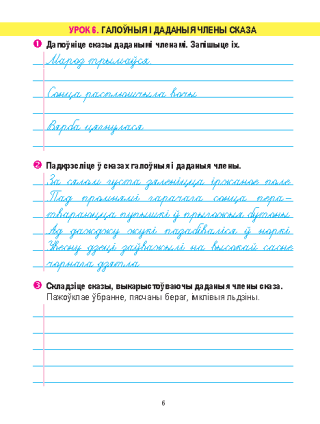 УРОК 6. ГАЛОЎНЫЯ І ДАДАНЫЯ ЧЛЕНЫ СКАЗА
1 Дапоўніце сказы даданымі членамі. Запішыце іх.
Мароз трымаўся
Сонца расплюшчыла вочы
Вярба цягнулася
2 Падкрэсліце ў сказах галоўныя і даданыя члены.
За сялом густа зелянілася іржаное поле.
Пад промнямі гарачага сонца пера-
твараюцца пупышкі ў прыгожыя бутоны.
Ад дажджу жукі пазабіваліся ў норкі.
Увесну дзеці заўважылі на высокай сасне
чорнага дзятла.
3 Складзіце сказы, выкарыстоўваючы даданыя члены сказа.
Пажоўклае ўбранне, пясчаны бераг, імклівыя льдзіны.
6